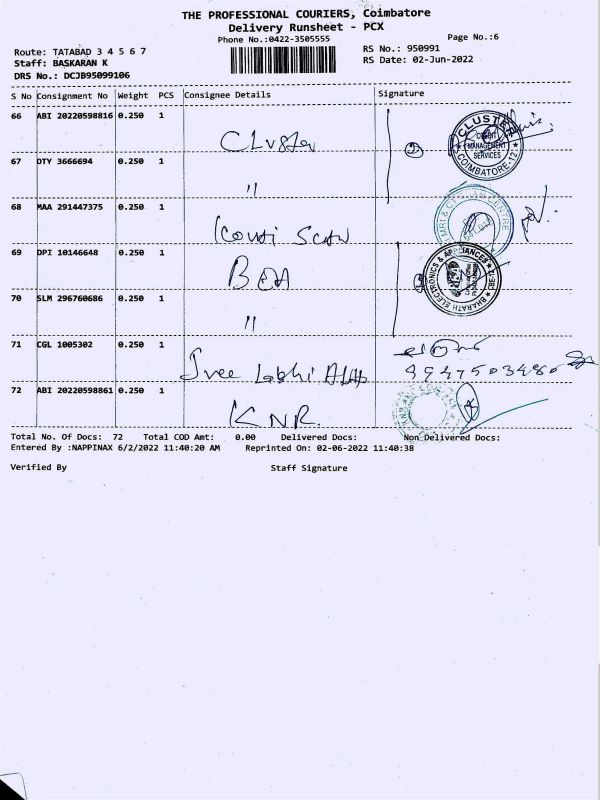 THE PROFESSIONAL COURIERS, Coimbatore
Delivery Runsheet - PCX
Phone No.:0422-3505555
Page No.:6
Route: TATABAD 3 4 5 6 7
Staff: BASKARAN K
DRS No.: DCJB95099106
RS No.: 950991
RS Date: 02-Jun-2022
S No Consignment No Weight PCS Consignee Details Signature
66 ABI 20220598816 0.250 1 Cluster
CLUSTER CREDIT MANAGEMENT SERVICES COIMBATORE-12
67 DTY 3666694 0.250 1 "
68 MAA 291447375 0.250 1 Scan
69 DPI 10146648 0.250 1
BHARATH ELECTRONICS & APPLIANCES
70 SLM 296760686 0.250 1 "
71 CGL 1005302 0.250 1 Sree
72 ABI 20220598861 0.250 1 KNR
Total No. Of Docs: 72 Total COD Amt: 0.00 Delivered Docs: Non Delivered Docs:
Entered By :NAPPINAX 6/2/2022 11:40:20 AM Reprinted On: 02-06-2022 11:40:38
Verified By Staff Signature